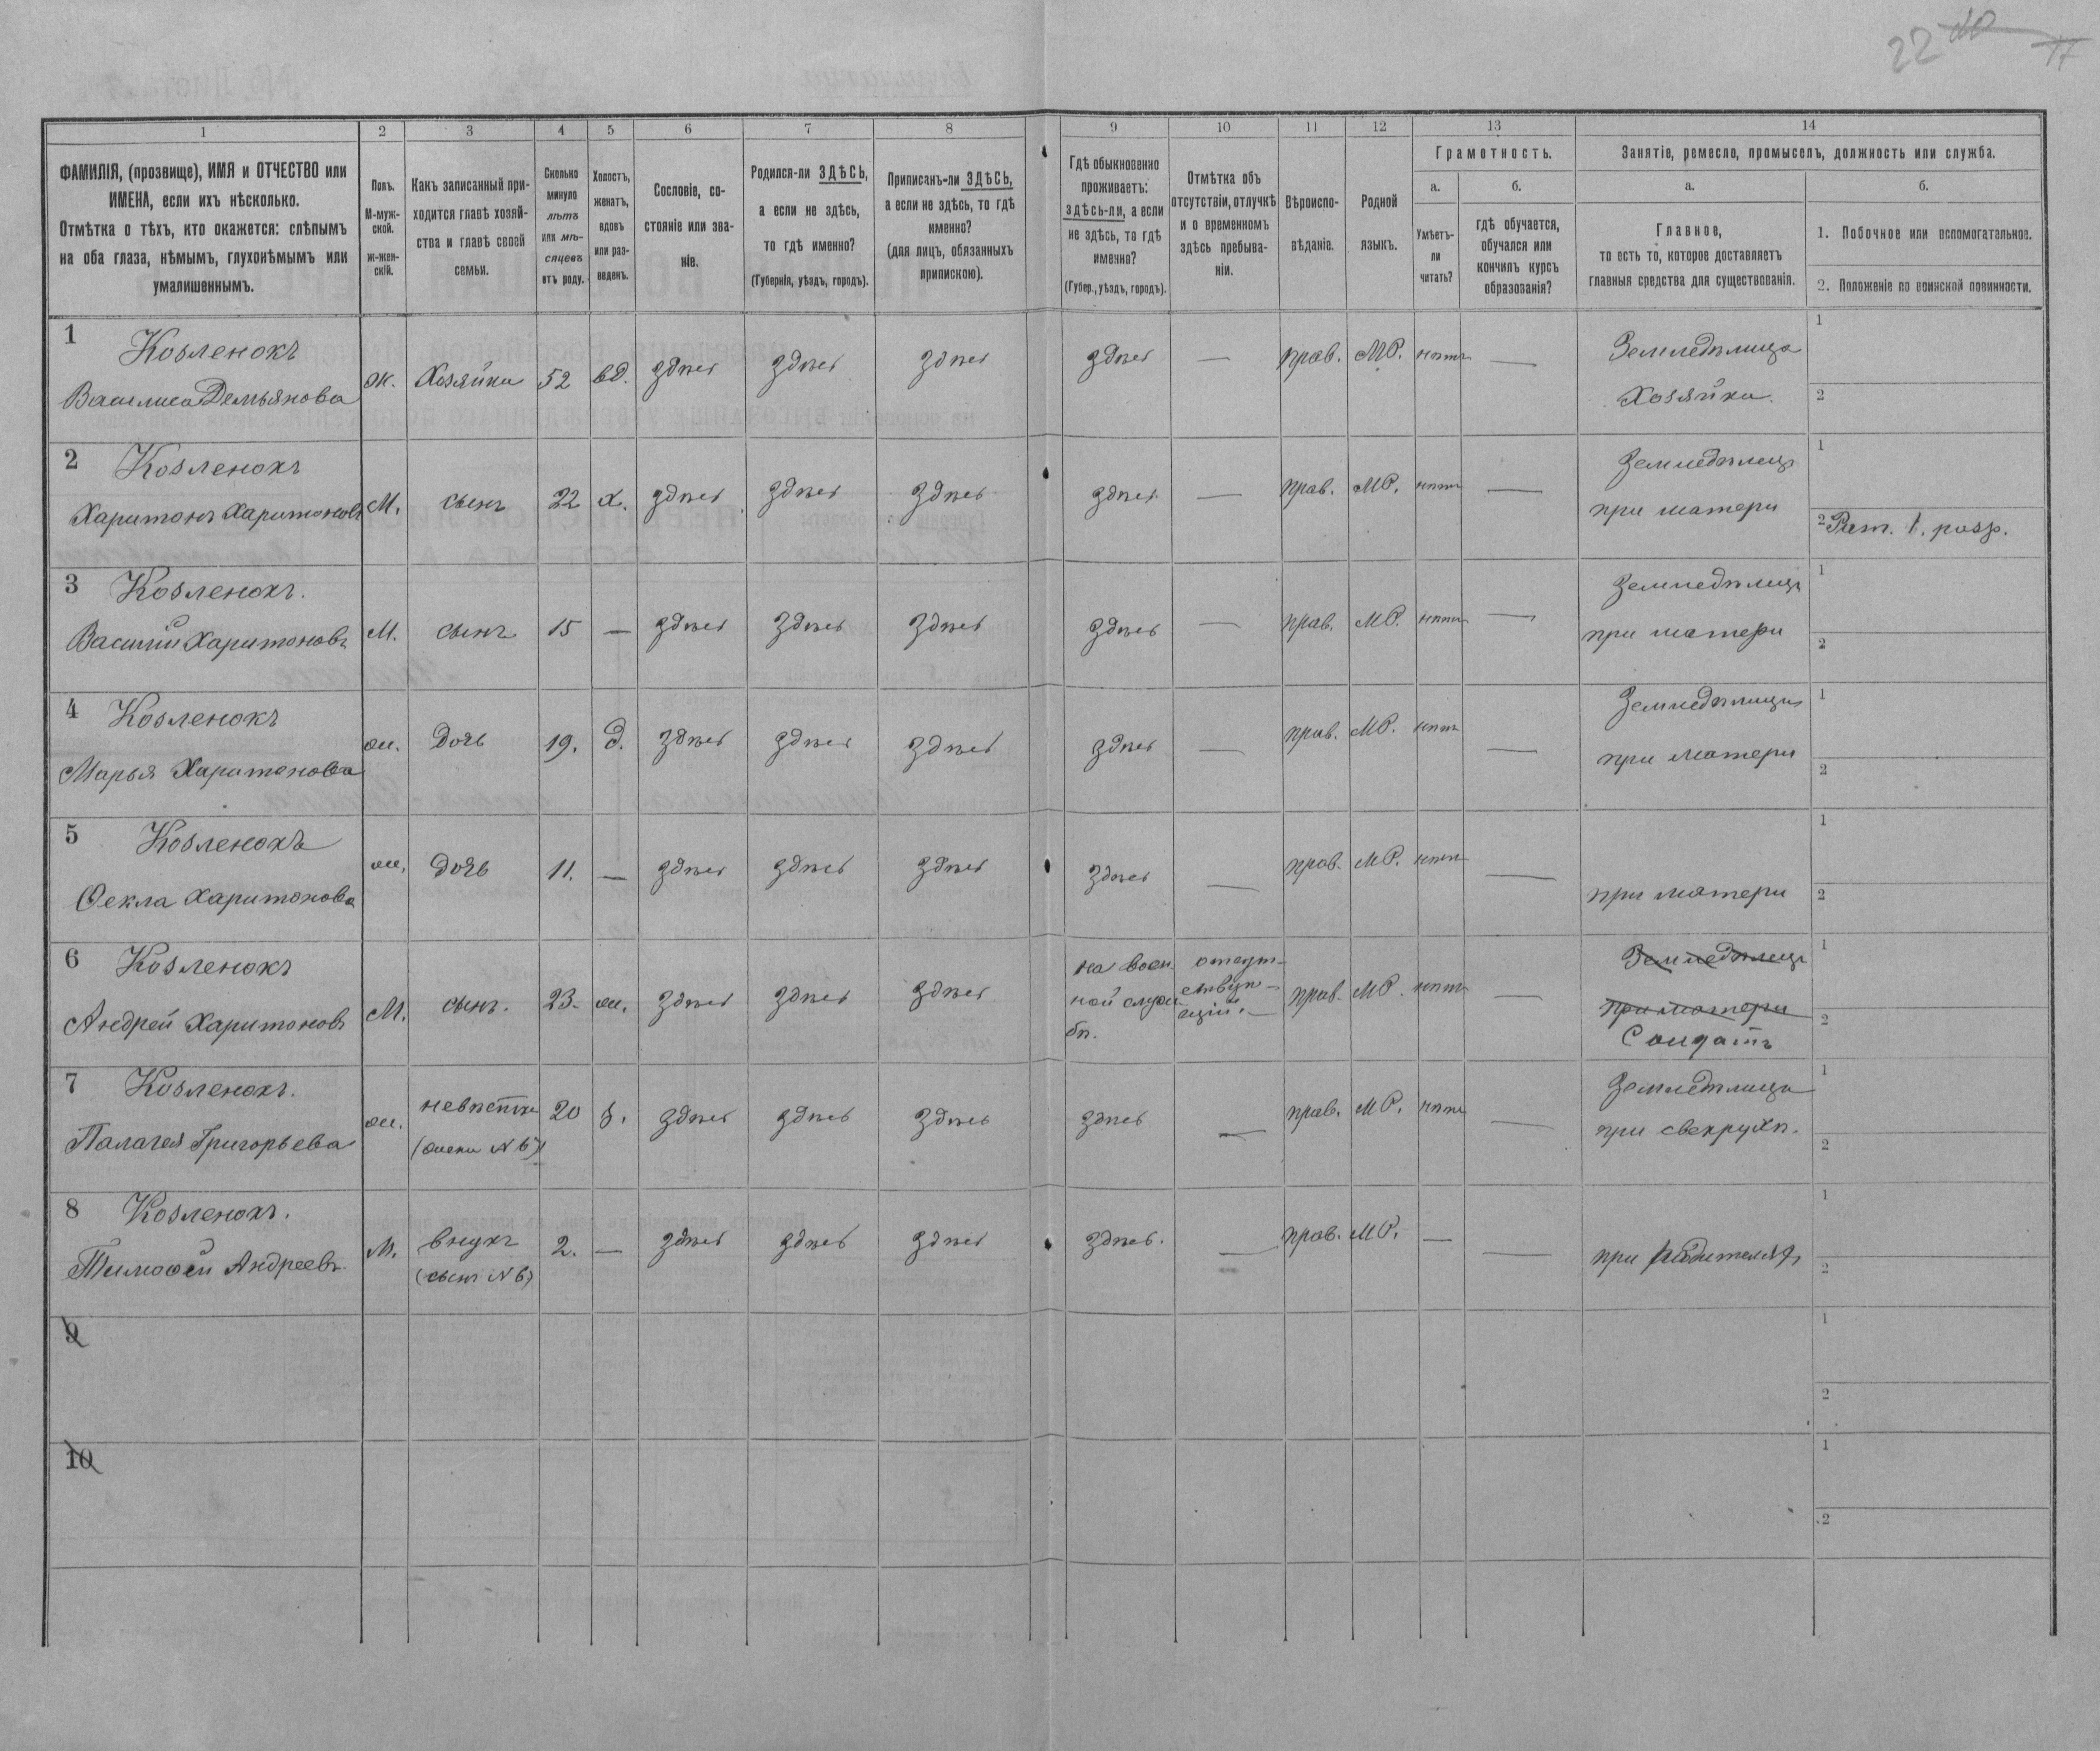 22
17
1 2 3 4 5 6 7 8 9 10 11 12 13 14
ФАМИЛІЯ, (прозвище), ИМЯ и ОТЧЕСТВО или
ИМЕНА, если ихъ нѣсколько.
Отмѣтка о тѣхъ, кто окажется: слѣпымъ
на оба глаза, нѣмымъ, глухонѣмымъ или
умалишеннымъ.
Полъ.
М-муж-
ской.
ж-жен-
скій.
Какъ записанный при-
ходится главѣ хозяй-
ства и главѣ своей
семьи.
Сколько
минуло
лѣтъ
или мѣ-
сяцевъ
отъ роду.
Холостъ,
женатъ,
вдовъ
или раз-
веденъ.
Сословіе, со-
стояніе или зва-
ніе.
Родился-ли ЗДѢСЬ,
а если не здѣсь,
то гдѣ именно?
(Губернія, уѣздъ, городъ).
Приписанъ-ли ЗДѢСЬ,
а если не здѣсь, то гдѣ
именно?
(для лицъ, обязанныхъ
припискою).
Гдѣ обыкновенно
проживаетъ:
здѣсь-ли, а если
не здѣсь, то гдѣ
именно?
(Губер., уѣздъ, городъ).
Отмѣтка объ
отсутствіи, отлучкѣ
и о временномъ
здѣсь пребыва-
ніи.
Вѣроиспо-
вѣданіе.
Родной
языкъ.
Грамотность.
а.
Умѣетъ-
ли
читать?
б.
гдѣ обучается,
обучался или
кончилъ курсъ
образованія?
Занятіе, ремесло, промыселъ, должность или служба.
а.
Главное,
то есть то, которое доставляетъ
главныя средства для существованія.
б.
1. Побочное или вспомогательное.
2. Положеніе по воинской повинности.
1 Козленокъ
Василиса Демьянова
ж. Хозяйка 52 вд. здѣсь здѣсь здѣсь здѣсь — прав. МР. нѣтъ —
Земледѣлица
Хозяйка.
1
2
2 Козленокъ
Харитонъ Харитоновъ
М. сынъ 22 х. здѣсь здѣсь здѣсь здѣсь — прав. МР. нѣтъ —
Земледѣлецъ
при матери
1
2 Рат. 1. разр.
3 Козленокъ.
Василій Харитоновъ
М. сынъ 15 — здѣсь здѣсь здѣсь здѣсь — прав. МР. нѣтъ —
Земледѣлецъ
при матери
1
2
4 Козленокъ
Марья Харитонова
ж. дочь 19. д. здѣсь здѣсь здѣсь здѣсь — прав. МР. нѣтъ —
Земледѣлица
при матери
1
2
5 Козленокъ
Ѳекла Харитонова
ж. дочь 11. — здѣсь здѣсь здѣсь здѣсь — прав. МР. нѣтъ —
при матери
1
2
6 Козленокъ
Андрей Харитоновъ
М. сынъ. 23. ж. здѣсь здѣсь здѣсь
на воен
ной служ
бѣ.
отсут-
ствую-
щій. —
прав. МР. нѣтъ —
Земледѣлецъ
при матери
Солдатъ
1
2
7 Козленокъ.
Палагея Григорьева
ж. невѣстка
(жена №6)
20 з. здѣсь здѣсь здѣсь здѣсь — прав. МР. нѣтъ —
Земледѣлица
при свекрухѣ.
1
2
8 Козленокъ.
Тимоѳей Андреевъ.
М. внукъ
(сынъ №6)
2. — здѣсь здѣсь здѣсь здѣсь. — прав. МР. — —
при родителяхъ
1
2
9
1
2
10
1
2